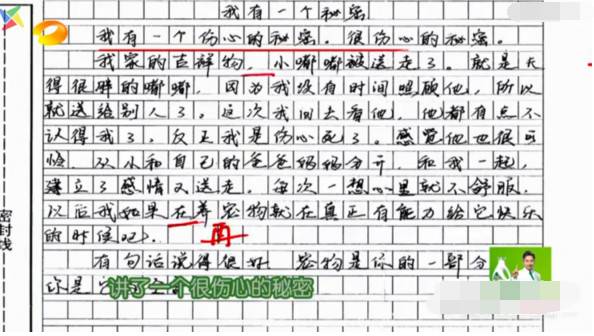 我有一个秘密
我有一个伤心的秘密。很伤心的秘密。
我家的吉祥物,小嘟嘟被送走了。就是长
得很胖的嘟嘟,因为我没有时间照顾他,所以
就送给别人了。这次我回去看他,他都有点不
认得我了,反正我是伤心死了。感觉他也很可
怜,从小和自己的爸爸妈妈分开,和我一起,
建立了感情又送走,每次一想心里就不舒服,
以后我如果在养宠物就在真正有能力给它快乐
的时候吧。
再
有句话说得很好,宠物是你的一部分
你是
讲了一个很伤心的秘密
密封线